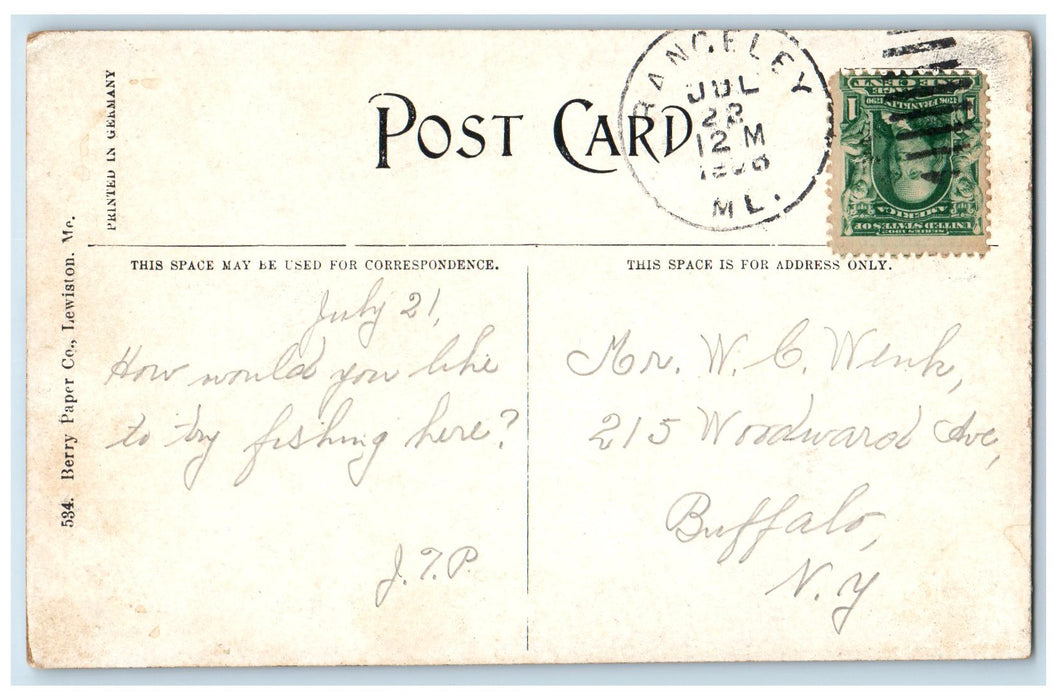 PRINTED IN GERMANY
534. Berry Paper Co., Lewiston. Me.
POST CARD
RANGELEY
JUL
22
12 M
1908
ME.
SERIES 1902
UNITED STATES OF
AMERICA
1706 FRANKLIN 1790
1 1
ONE CENT
THIS SPACE MAY BE USED FOR CORRESPONDENCE.
July 21,
How would you like
to try fishing here?
J.T.P.
THIS SPACE IS FOR ADDRESS ONLY.
Mr. W. C. Wenk,
215 Woodward Ave,
Buffalo,
N.Y